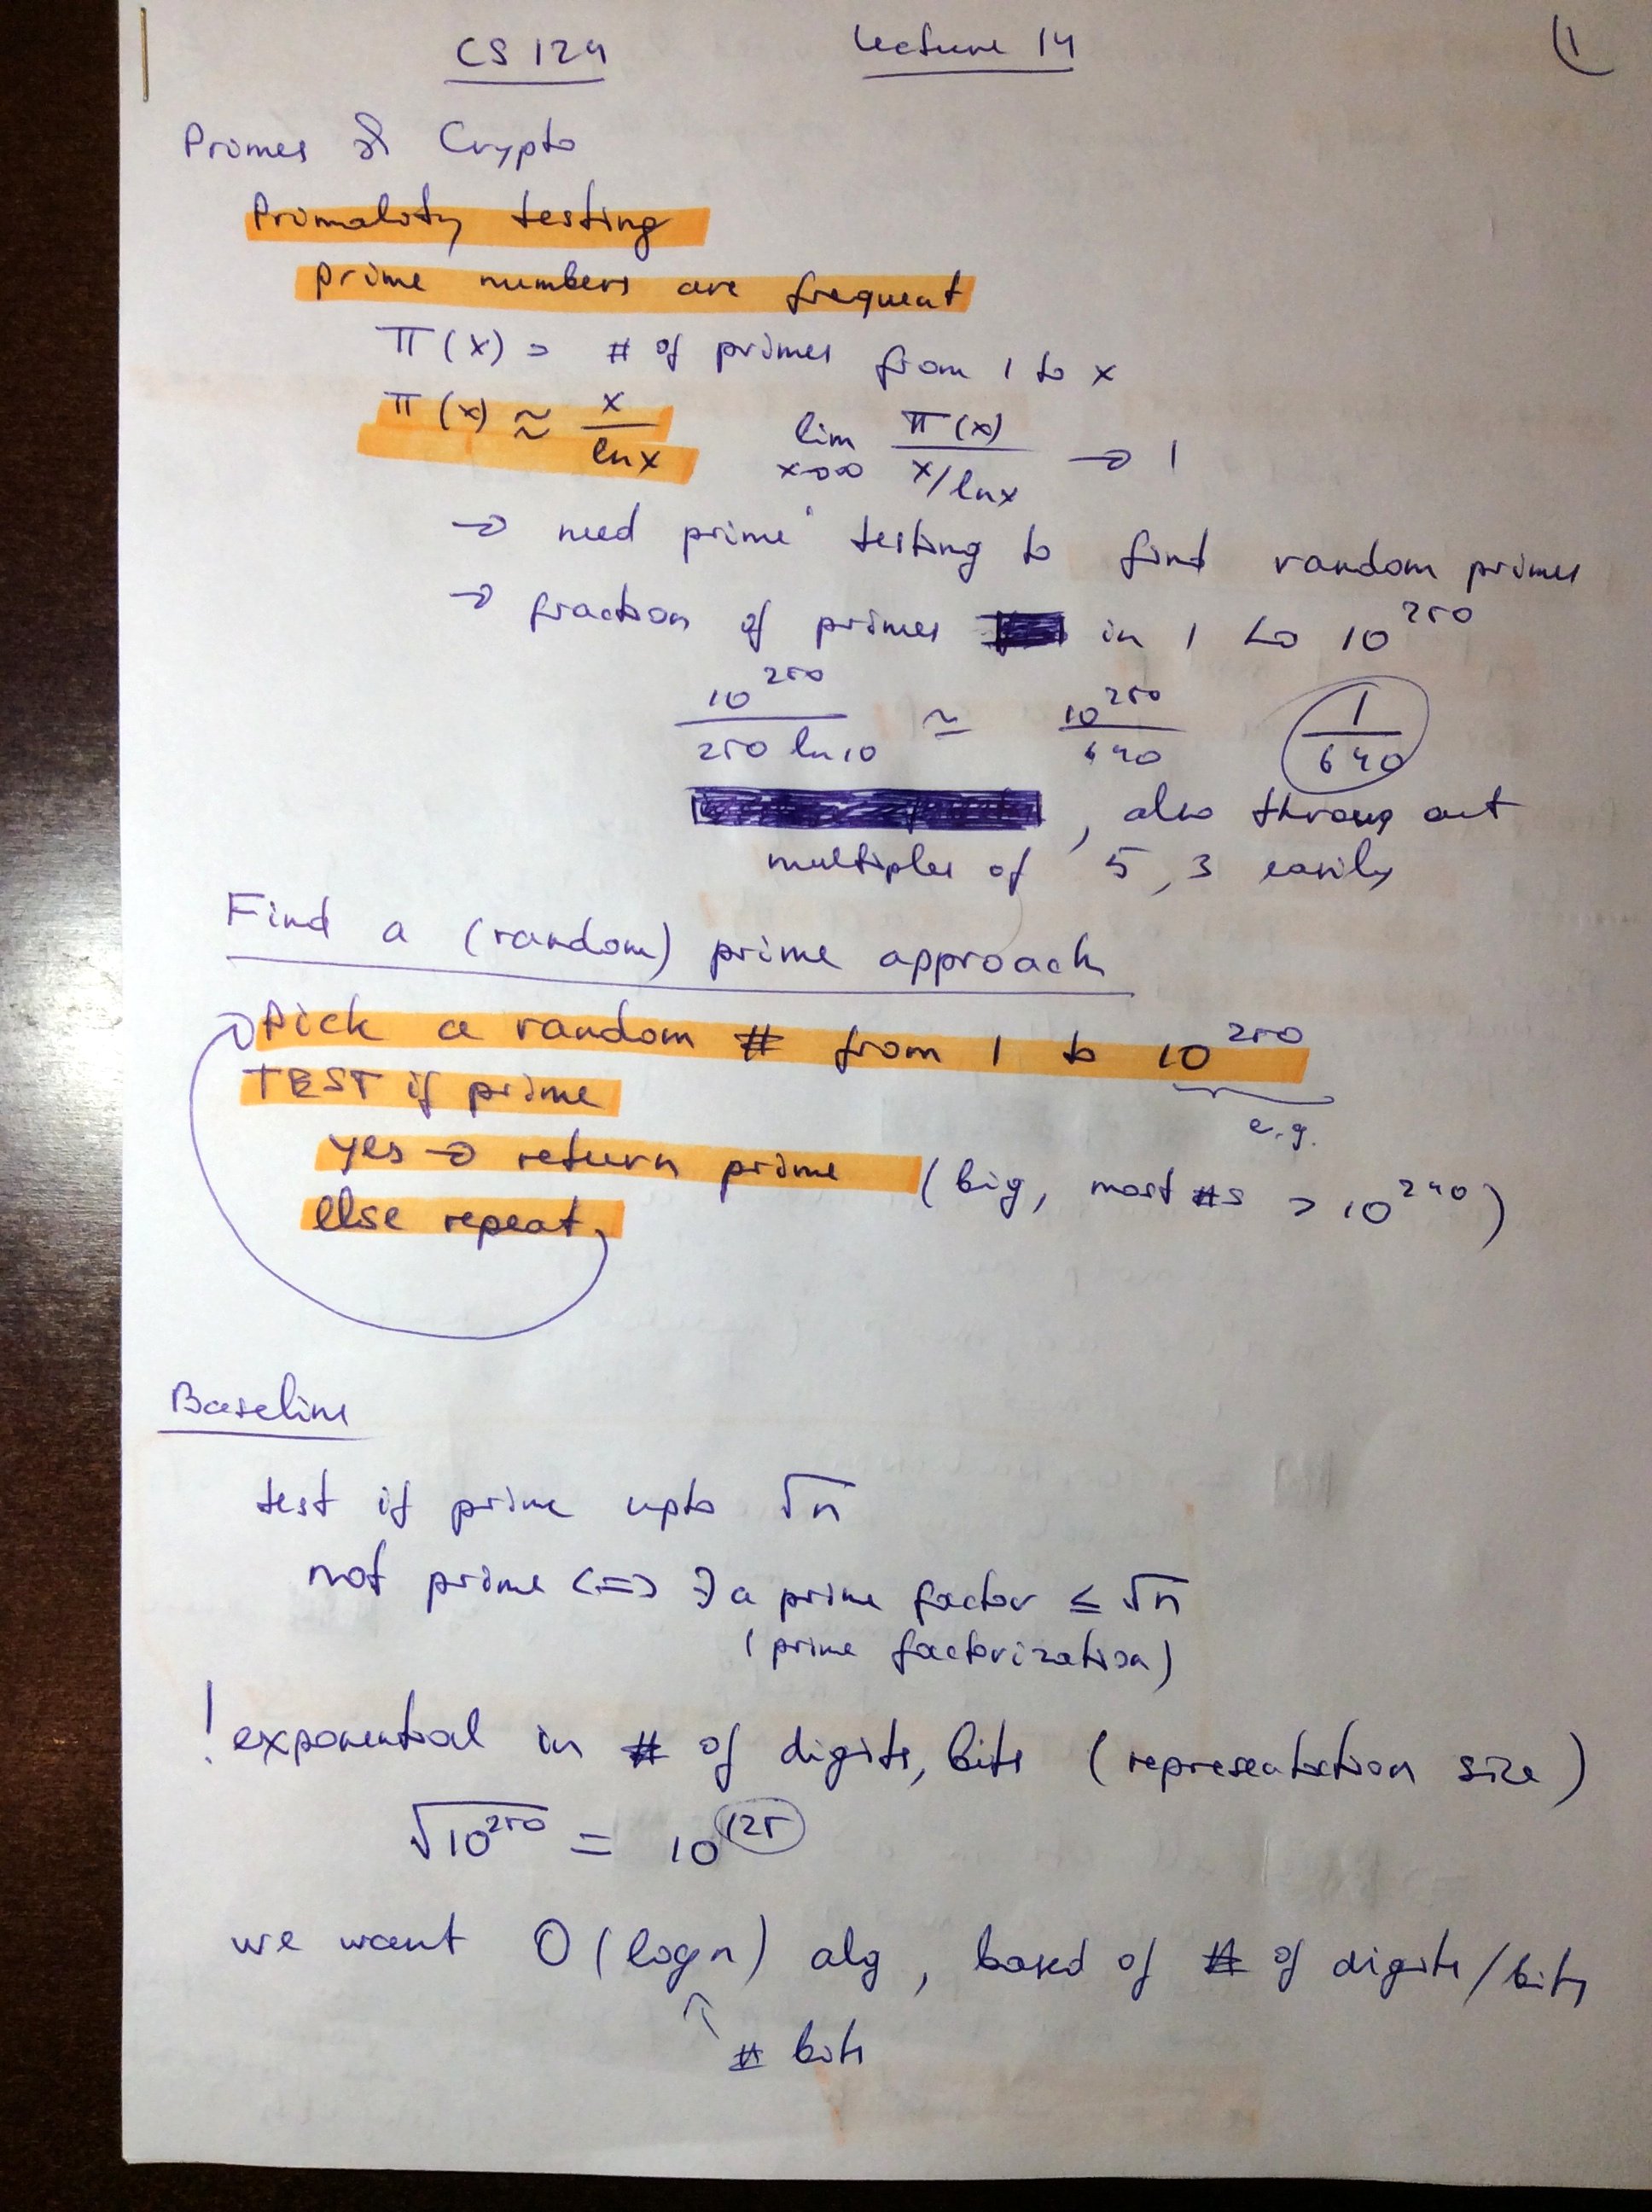 CS 124 Lecture 14 1
Primes & Crypto
Primality testing
prime numbers are frequent
π(x) = # of primes from 1 to x
π(x) ≈ x / ln x lim x→∞ π(x) / x/ln x → 1
→ need prime testing to find random primes
→ fraction of primes in 1 to 10^250
10^250 / 250 ln 10 ≃ 10^250 / 640 1/640
, also throug out
multiples of 5, 3 easily
Find a (random) prime approach
Pick a random # from 1 to 10^250
TEST if prime
e.g.
yes → return prime (big, most #s > 10^240)
else repeat
Baseline
test if prime upto √n
not prime <=> ∃ a prime factor ≤ √n
(prime factorization)
! exponential in # of digits, bits (representation size)
√10^250 = 10^125
we want O(log n) alg, based of # of digits/bits
↑ # bits